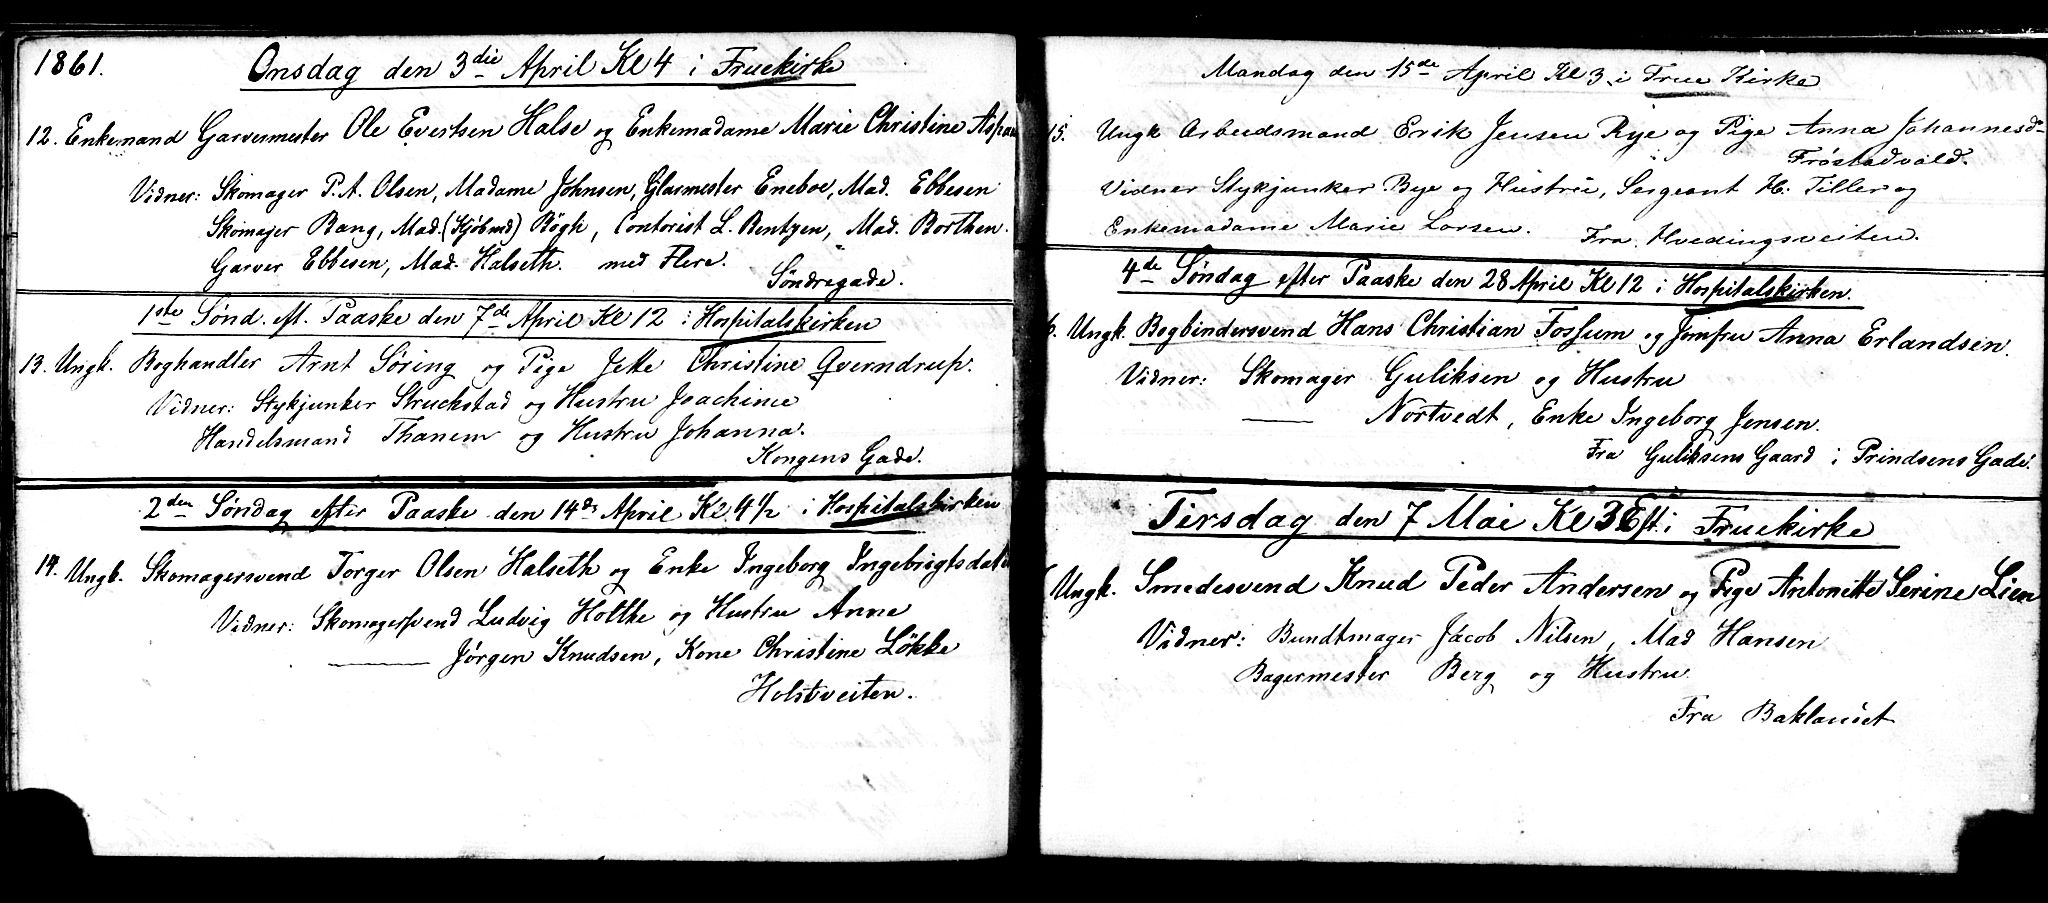 1861.
Onsdag den 3die April Kl 4 i Fruekirke
12. Enkemand Garvermester Ole Evertsen Halse og Enkemadame Marie Christine
Vidner: Skomager P. A. Olsen, Madame Johnsen, Glasmester Eneboe, Mad. Ebbesen
Skomajer Bang, Mad. (Kjöbmd) Bögh, Contorist L. Bentzen, Mad. Borthen.
Garver Ebbesen, Mad. Halseth. med Flere.
Söndregade.
1ste Sönd. eft. Paaske den 7de April Kl 12 i Hospitalskirken
13. Ungk. Boghandler Arnt Söring og Pige Jette Christine Qverndrup.
Vidner: Stykjunker Struckstad og Hustru Joachime
Handelsmand Thanem og Hustru Johanna.
Kongens Gade.
2den Søndag efter Paaske den 14de April Kl 4 1/2 i Hospitalskirken
14. Ungk. Skomagersvend Torger Olsen Halseth og Enke Ingeborg Ingebrigtsdatter
Vidner: Skomagersvend Ludvig Holthe og Hustru Anne
—— Jørgen Knudsen, Kone Christine Lökke
Holstveiten.
Mandag den 15de April Kl 3 i Frue Kirke
15. Ungk Arbeidsmand Erik Jensen Rye og Pige Anna Johannesd-
Fröstadvald.
Vidner Stykjunker Bye og Hustru, Sergeant H. Tiller og
Enkemadame Marie Larsen. Fra Hvedingsveiten.
4de Søndag efter Paaske den 28 April Kl 12 i Hospitalskirken.
Ungk. Bogbindersvend Hans Christian Fossum og Jomfru Anna Erlandsen.
Vidner: Skomager Guliksen og Hustru
—— Nortvedt, Enke Ingeborg Jensen.
Fra Guliksens Gaard i Prindsens Gade.
Tirsdag den 7 Mai Kl 3 Eft. i Fruekirke
Ungk. Smedesvend Knud Peder Andersen og Pige Antonette Serine Lien
Vidner: Bundtmager Jacob Nilsen, Mad Hansen
Bagermester Berg og Hustru.
Fra Baklandet